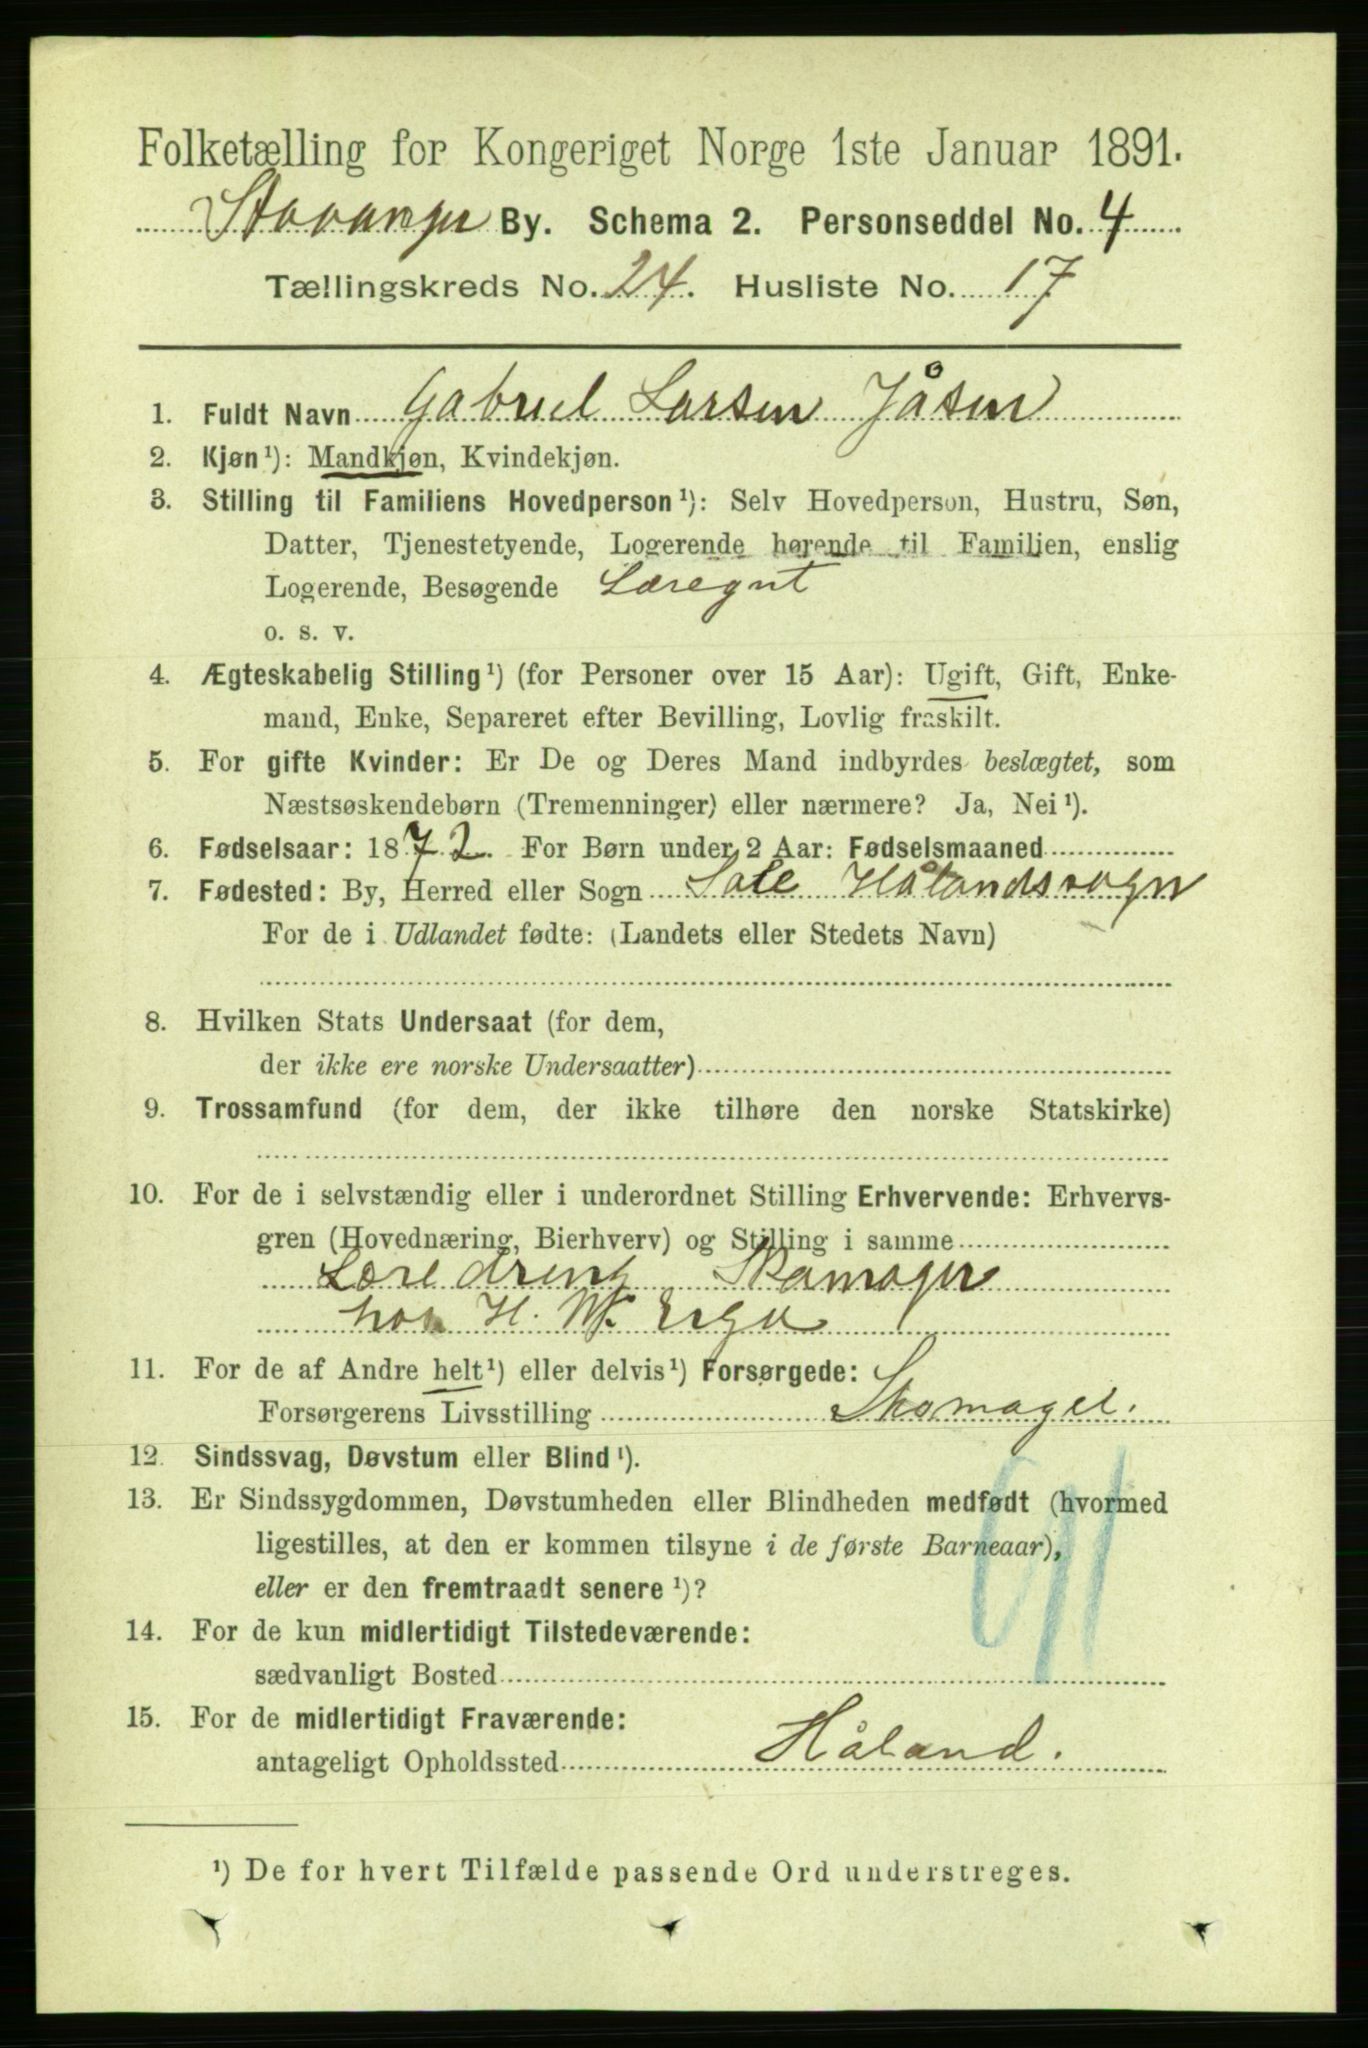 Folketælling for Kongeriget Norge 1ste Januar 1891.
Stavanger By. Schema 2. Personseddel No. 4
Tællingskreds No. 24. Husliste No. 17
1. Fuldt Navn Gabriel Larsen Jåsen
2. Kjøn¹): Mandkjøn, Kvindekjøn.
3. Stilling til Familiens Hovedperson¹): Selv Hovedperson, Hustru, Søn,
Datter, Tjenestetyende, Logerende hørende til Familien, enslig
Logerende, Besøgende Læregut
o. s. v.
4. Ægteskabelig Stilling¹) (for Personer over 15 Aar): Ugift, Gift, Enke-
mand, Enke, Separeret efter Bevilling, Lovlig fraskilt.
5. For gifte Kvinder: Er De og Deres Mand indbyrdes beslægtet, som
Næstsøskendebørn (Tremenninger) eller nærmere? Ja, Nei¹).
6. Fødselsaar: 1872. For Børn under 2 Aar: Fødselsmaaned
7. Fødested: By, Herred eller Sogn Håtandssogn
For de i Udlandet fødte: (Landets eller Stedets Navn)
8. Hvilken Stats Undersaat (for dem,
der ikke ere norske Undersaatter)
9. Trossamfund (for dem, der ikke tilhøre den norske Statskirke)
10. For de i selvstændig eller i underordnet Stilling Erhvervende: Erhvervs-
gren (Hovednæring, Bierhverv) og Stilling i samme
Læredreng Skomager
hos H. W. Erga
11. For de af Andre helt¹) eller delvis¹) Forsørgede:
Forsørgerens Livsstilling Skomager.
12. Sindssvag, Døvstum eller Blind¹).
13. Er Sindssygdommen, Døvstumheden eller Blindheden medfødt (hvormed
ligestilles, at den er kommen tilsyne i de første Barneaar),
eller er den fremtraadt senere¹)?
14. For de kun midlertidigt Tilstedeværende:
sædvanligt Bosted
15. For de midlertidigt Fraværende:
antageligt Opholdssted Håland.
¹) De for hvert Tilfælde passende Ord understreges.